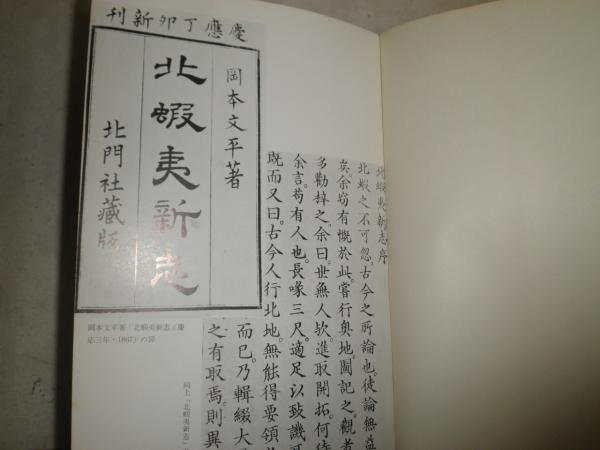 慶應丁卯新刊
岡本文平著
北蝦夷新志
北門社藏版
岡本文平著「北蝦夷新志」(慶
応三年・1867)の扉
北蝦夷新志序
北蝦之不可忽。古今之所論也。徒論無益
矣。余窃有慨於此。嘗行奥地。闔記之。觀者
多勸梓之。余曰。世無人欤。進取開拓。何待
余言。苟有人也。長喙三尺。適足以致譏
既而又曰。古今人行北地。無能得要領
而已。乃輯綴大
之有取焉。則異
同上「北蝦夷新志」